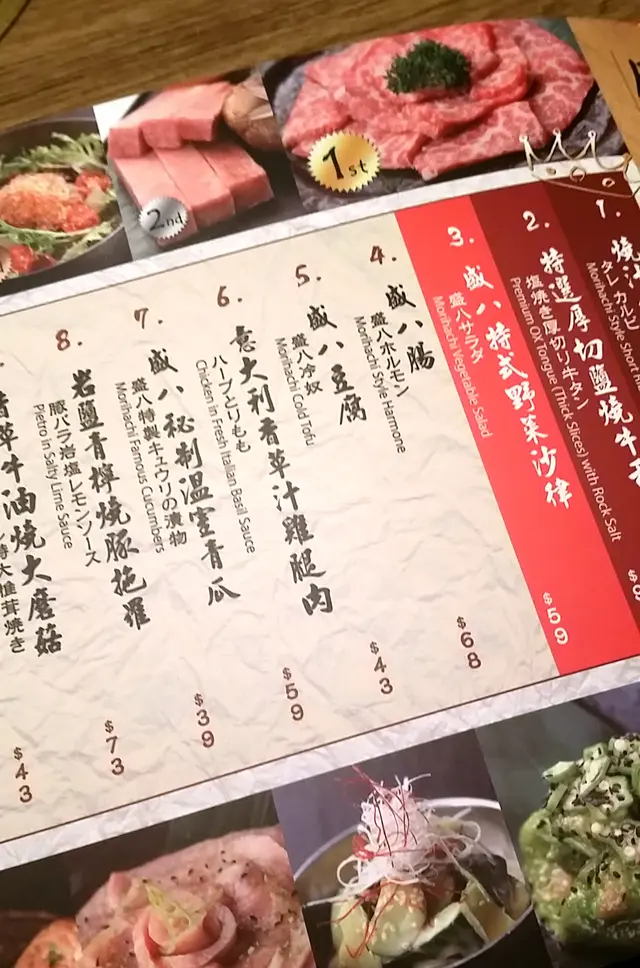 1st
2nd
1.
燒
タレ カルビ
Morihachi Style Short
2.
特選厚切鹽燒牛
塩焼き厚切りキタン
Premium OX Tongue (Thick Slices) with Rock Salt
$
3.
盛八特式野菜沙律
盛八サラダ
Morihachi Vegetable Salad
$59
4.
盛八腸
盛八ホルモン
Morihachi Style Harmone
$68
5.
盛八豆腐
盛八冷奴
Morihachi Cold Tofu
$43
6.
意大利香草汁雞腿肉
ハーブとりもも
Chicken in Fresh Italian Basil Sauce
$59
7.
盛八秘制溫室青瓜
盛八特製キュウリの漬物
Morihachi Famous Cucumbers
$39
8.
岩鹽青檸燒豚拖羅
豚バラ岩塩レモンソース
Pietro in Salty Lime Sauce
$73
香草牛油燒大磨菇
特大椎茸焼き
$43